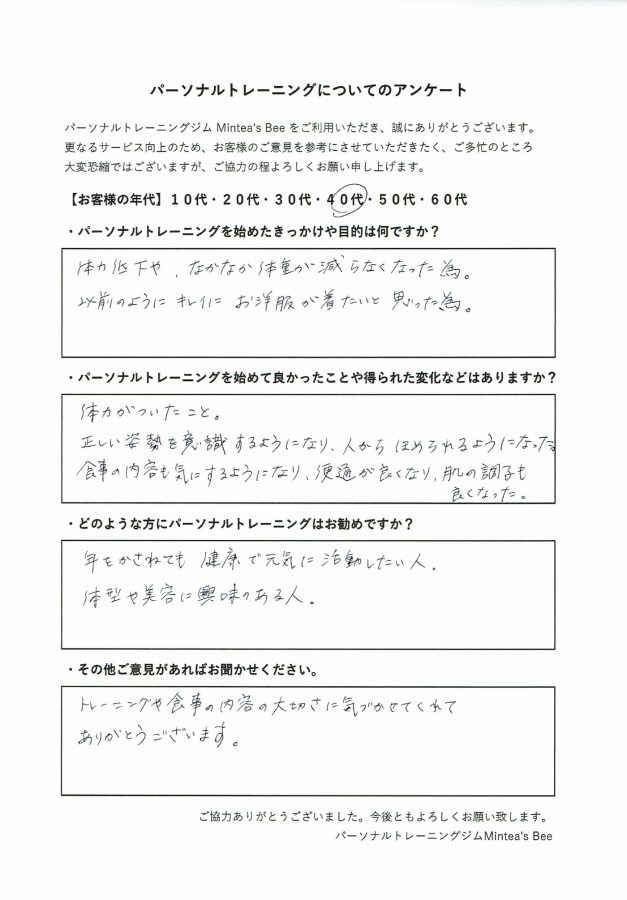 パーソナルトレーニングについてのアンケート
パーソナルトレーニングジム Mintea's Bee をご利用いただき、誠にありがとうございます。
更なるサービス向上のため、お客様のご意見を参考にさせていただきたく、ご多忙のところ
大変恐縮ではございますが、ご協力の程よろしくお願い申し上げます。
【お客様の年代】１０代・２０代・３０代・４０代・５０代・６０代
・パーソナルトレーニングを始めたきっかけや目的は何ですか？
体力低下や、なかなか体重が減らなくなった為。
以前のようにキレイにお洋服が着たいと思った為。
・パーソナルトレーニングを始めて良かったことや得られた変化などはありますか？
体力がついたこと。
正しい姿勢を意識するようになり、人からほめられるようになった。
食事の内容も気にするようになり、便通が良くなり、肌の調子も
良くなった。
・どのような方にパーソナルトレーニングはお勧めですか？
年をかさねても健康で元気に活動したい人。
体型や美容に興味のある人。
・その他ご意見があればお聞かせください。
トレーニングや食事の内容の大切さに気づかせてくれて
ありがとうございます。
ご協力ありがとうございました。今後ともよろしくお願い致します。
パーソナルトレーニングジムMintea's Bee